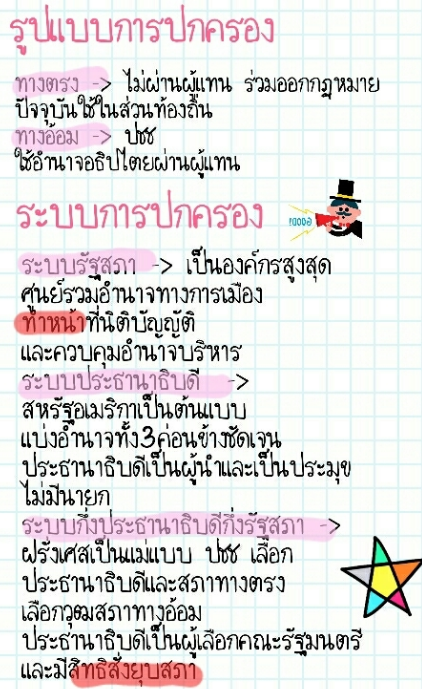 รูปแบบการปกครอง
ทางตรง -> ไม่ผ่านผู้แทน ร่วมออกกฎหมาย
ปัจจุบันใช้ในส่วนท้องถิ่น
ทางอ้อม -> ปชช
ใช้อำนาจอธิปไตยผ่านผู้แทน
ระบบการปกครอง
ระบบรัฐสภา -> เป็นองค์กรสูงสุด
ศูนย์รวมอำนาจทางการเมือง
ทำหน้าที่นิติบัญญัติ
และควบคุมอำนาจบริหาร
ระบบประธานาธิบดี ->
สหรัฐอเมริกาเป็นต้นแบบ
แบ่งอำนาจทั้ง3ค่อนข้างชัดเจน
ประธานาธิบดีเป็นผู้นำและเป็นประมุข
ไม่มีนายก
ระบบกึ่งประธานาธิบดีกึ่งรัฐสภา ->
ฝรั่งเศสเป็นแม่แบบ ปชช เลือก
ประธานาธิบดีและสภาทางตรง
เลือกวุฒสภาทางอ้อม
ประธานาธิบดีเป็นผู้เลือกคณะรัฐมนตรี
และมีสิทธิสั่งยุบสภา